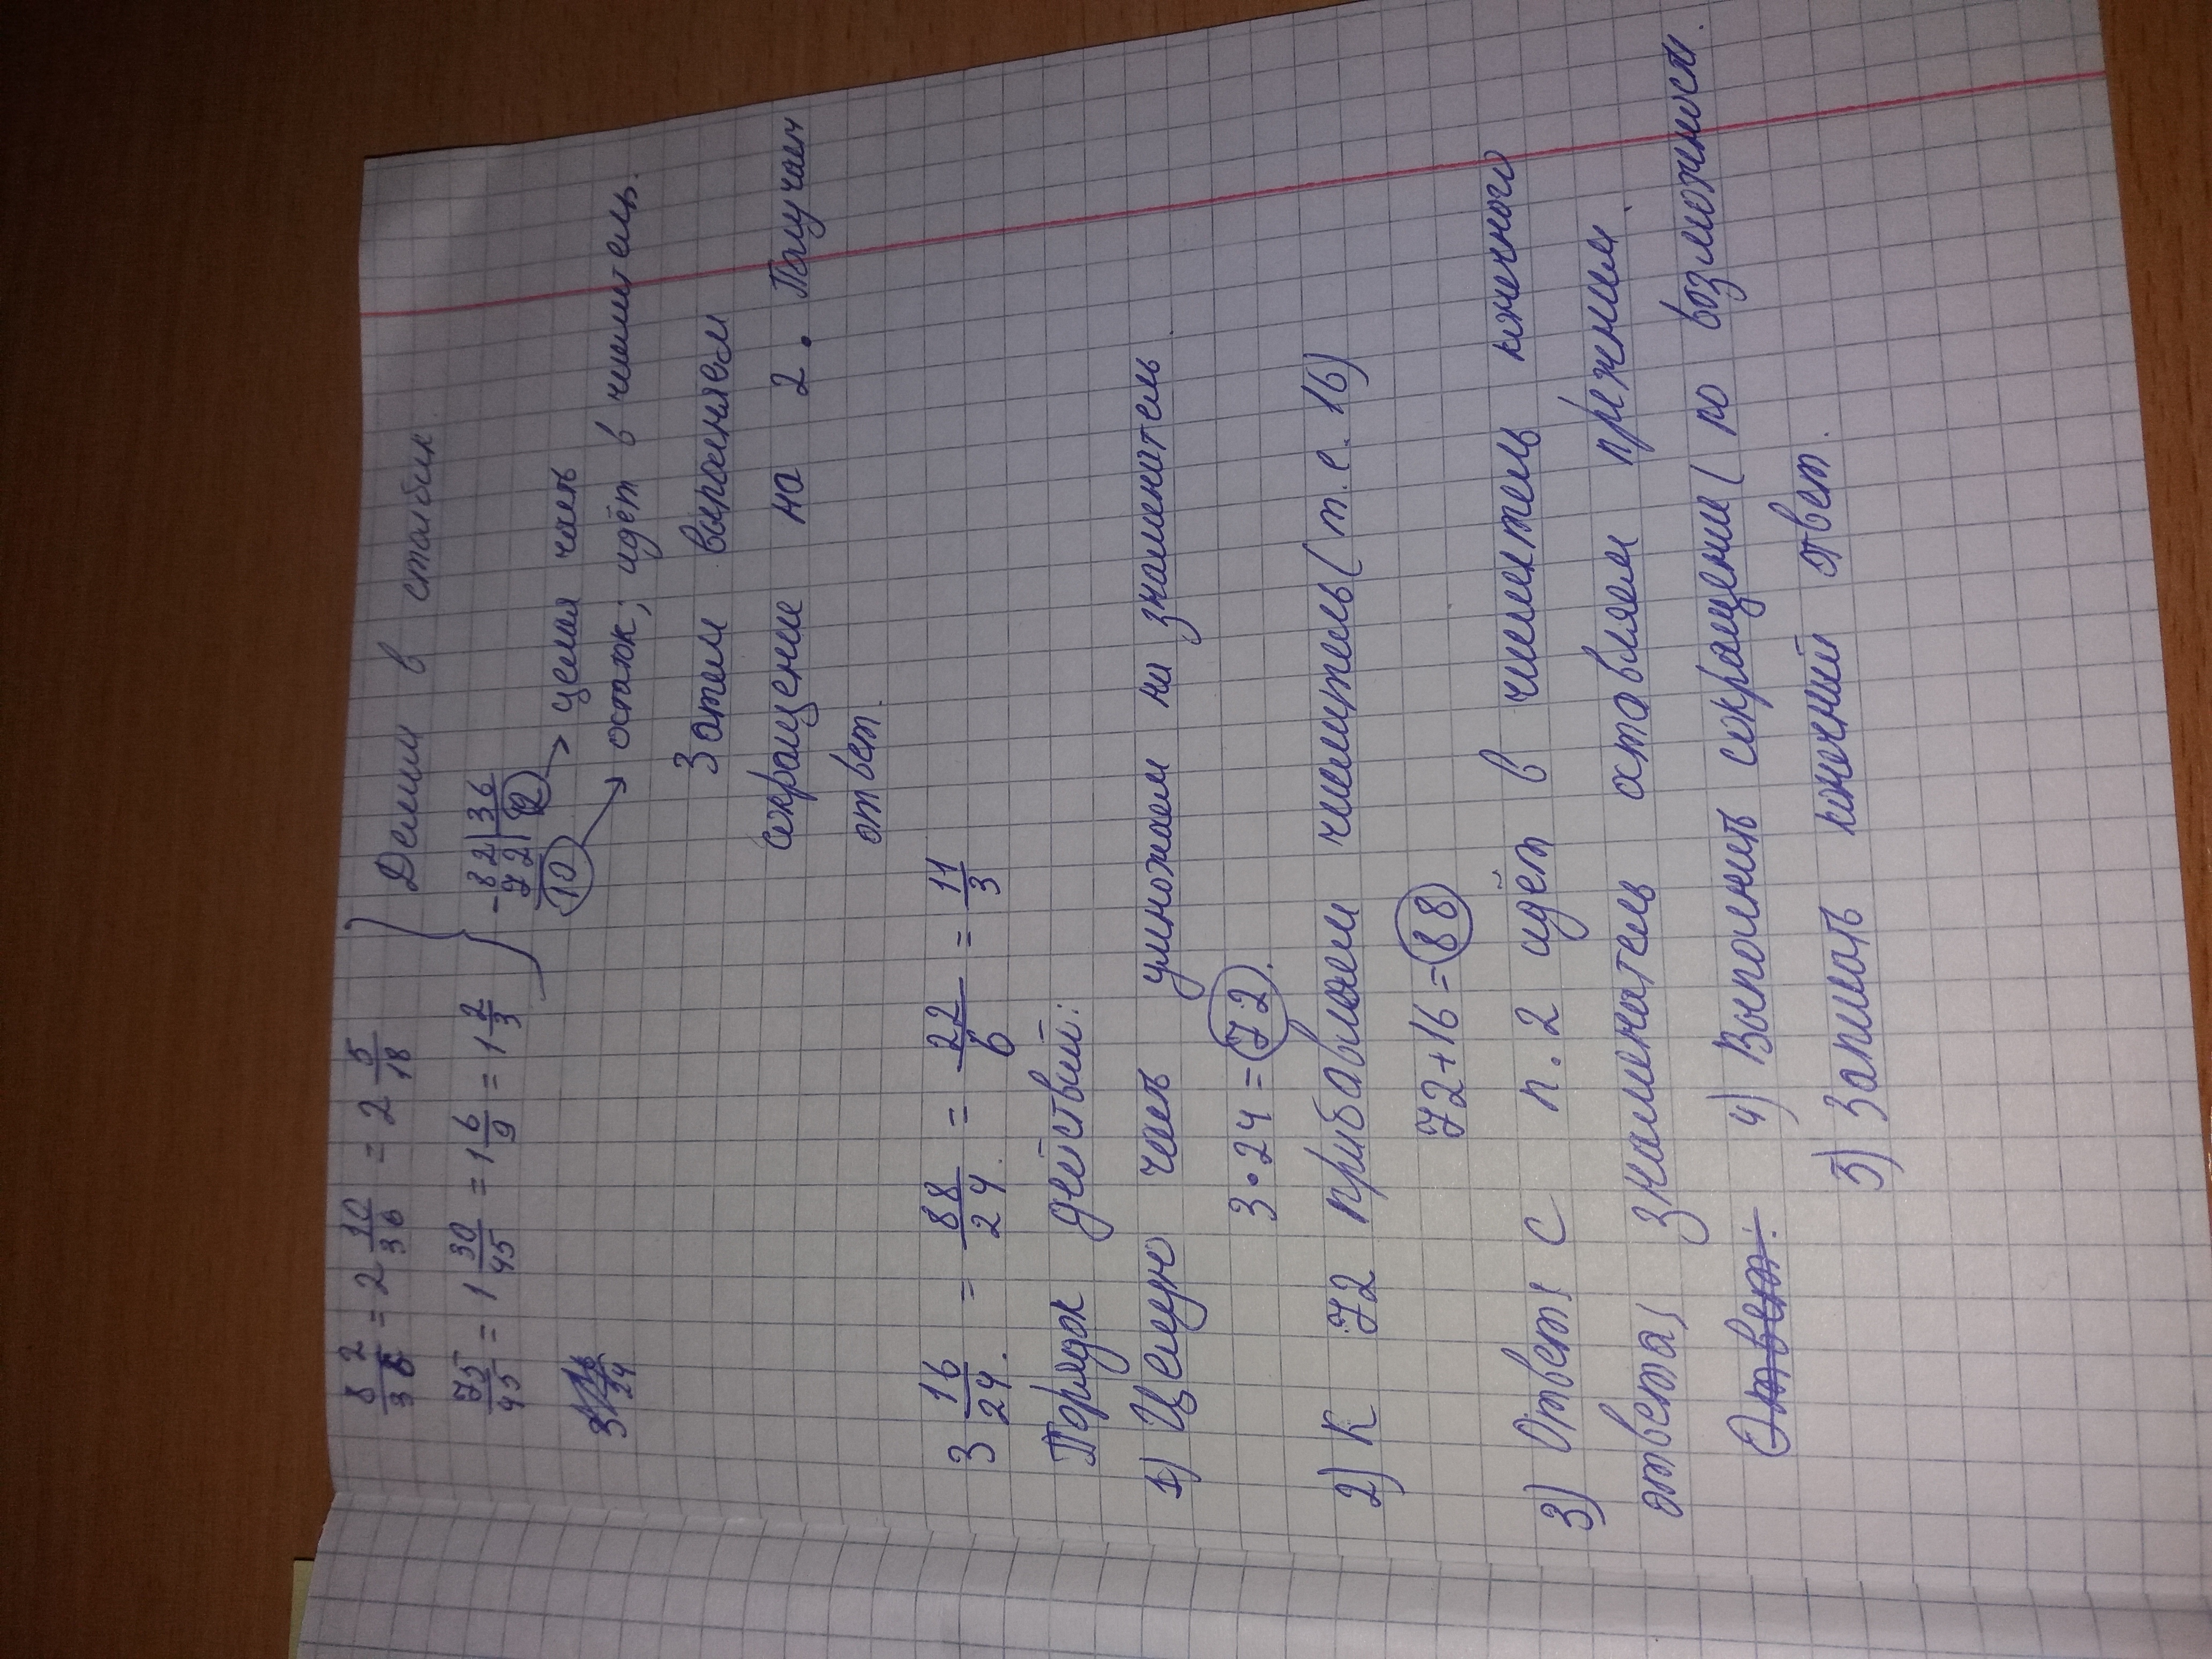 82/36 = 2 10/36 = 2 5/18 } Делим в столбик
75/45 = 1 30/45 = 1 6/9 = 1 2/3
- 82 | 36
72 | 2 → целая часть
10 → остаток; идёт в числитель.
3 16/24
Затем выполняем
сокращение на 2. Получаем
ответ.
3 16/24 = 88/24 = 22/6 = 11/3
Порядок действий:
1) Целую часть умножаем на знаменитель
3·24=72.
2) К 72 прибавляем числитель (т.е. 16)
72+16=88
3) Ответ с п.2 идёт в числитель конечного
ответа, знаменатель оставляем прежним.
Ответ: 4) Выполнить сокращение (по возможност.
5) Записать конечный ответ.